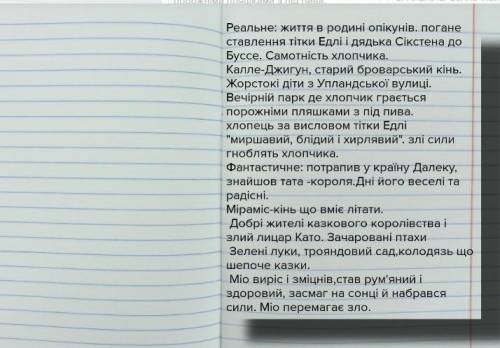 Реальне: життя в родині опікунів. погане
ставлення тітки Едлі і дядька Сікстена до
Буссе. Самотність хлопчика.
Калле-Джигун, старий броварський кінь.
Жорстокі діти з Упландської вулиці.
Вечірній парк де хлопчик грається
порожніми пляшками з під пива.
хлопець за висловом тітки Едлі
"миршавий, блідий і хирлявий". злі сили
гноблять хлопчика.
Фантастичне: потрапив у країну Далеку,
знайшов тата -короля.Дні його веселі та
радісні.
Мiрамiс-кінь що вміє літати.
Добрі жителі казкового королівства і
злий лицар Като. Зачаровані птахи
Зелені луки, трояндовий сад,колодязь що
шепоче казки.
Міо виріс і зміцнів,став рум'яний і
здоровий, засмаг на сонці й набрався
сили. Міо перемагає зло.